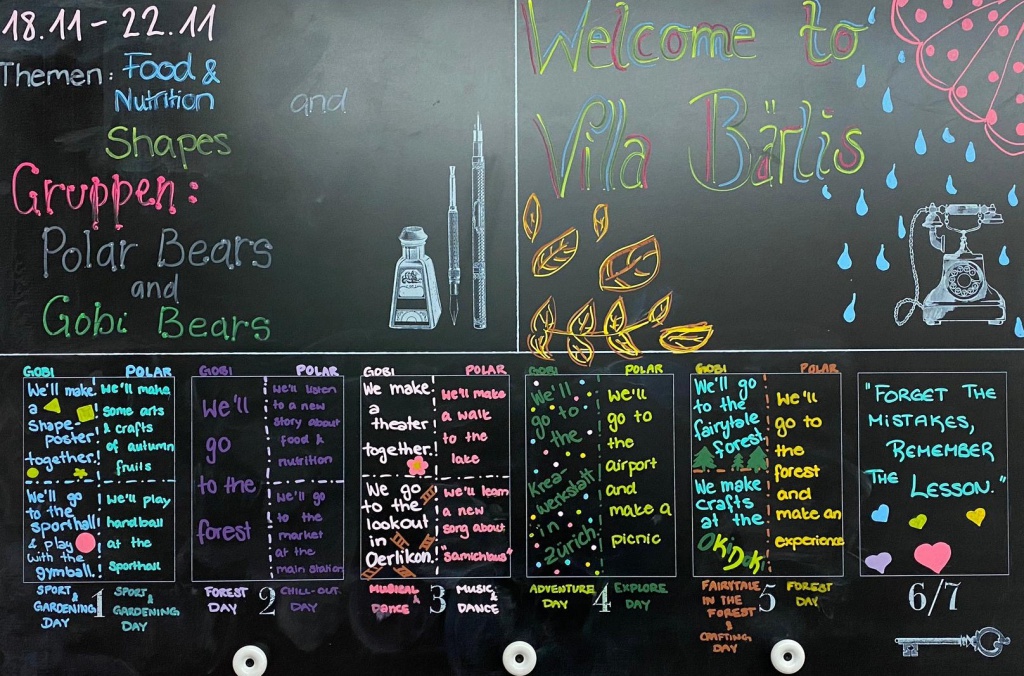 18.11 - 22.11
Themen: Food &
Nutrition
and
Shapes
Gruppen:
Polar Bears
and
Gobi Bears
Welcome to
Villa Bärlis
GOBI
We'll make
a
shape-
poster
together!
We'll go
to the
sporthall
& play
with the
gymball.
POLAR
We'll make
some arts
& crafts
of autumn
fruits
We'll play
handball
at the
sporthall
SPORT &
GARDENING
DAY
1
SPORT &
GARDENING
DAY
GOBI
We'll
go
to the
forest
POLAR
We'll listen
to a new
story about
food &
nutrition
We'll go
to the
market
at the
main station
FOREST
DAY
2
CHILL-OUT
DAY
GOBI
We make
a
theater
together.
We go
to the
lookout
in
Oerlikon.
POLAR
We'll make
a walk
to the
lake
We'll learn
a new
song about
"Samichlaus"
MUSIC &
DANCE
3
MUSIC &
DANCE
GOBI
We'll
go to
the
Krea-
werkstatt
in
Zürich
POLAR
We'll
go to
the
airport
and
make a
picnic
ADVENTURE
DAY
4
EXPLORE
DAY
GOBI
We'll go
to the
fairytale
forest
We make
crafts
at the
OKiDoki
POLAR
We'll
go to
the
forest
and
make an
experience
FAIRYTALE
IN THE
FOREST
&
CRAFTING
DAY
5
FOREST
DAY
"FORGET THE
MISTAKES,
REMEMBER
THE LESSON."
6/7